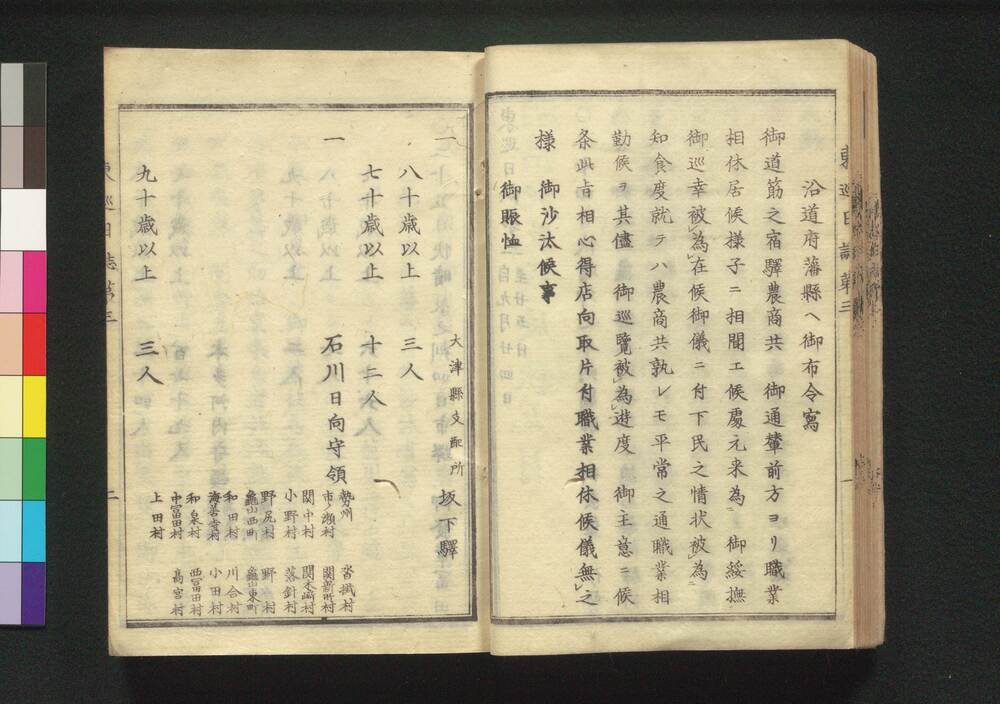 沿道府藩縣ヘ御布令寫
御道筋之宿驛農商共　御通輦前方ヨリ職業
相休居候樣子ニ相聞エ候處元来為　御綏撫
御巡幸被為在候御儀ニ付下民之情状被為
知食度就テハ農商共孰レモ平常之通職業相
勤候ヲ其儘　御巡覽被為遊度　御主意ニ候
条此旨相心得店向取片付職業相休候儀無之
樣　御沙汰候事
御賑恤
東巡日誌第三
一
一　大津縣支配所　坂下驛
八十歳以上　三人
七十歳以上　十二人
一　石川日向守領　勢州
沓掛村
市ノ瀬村　関新所村
関中村　関木崎村
小野村　落針村
野尻村　野村
龜山西町　龜山東町
和田村　川合村
海善寺村　小田村
和泉村　西冨田村
中冨田村　髙宮村
上田村
九十歳以上　三人
東巡日誌第三
二